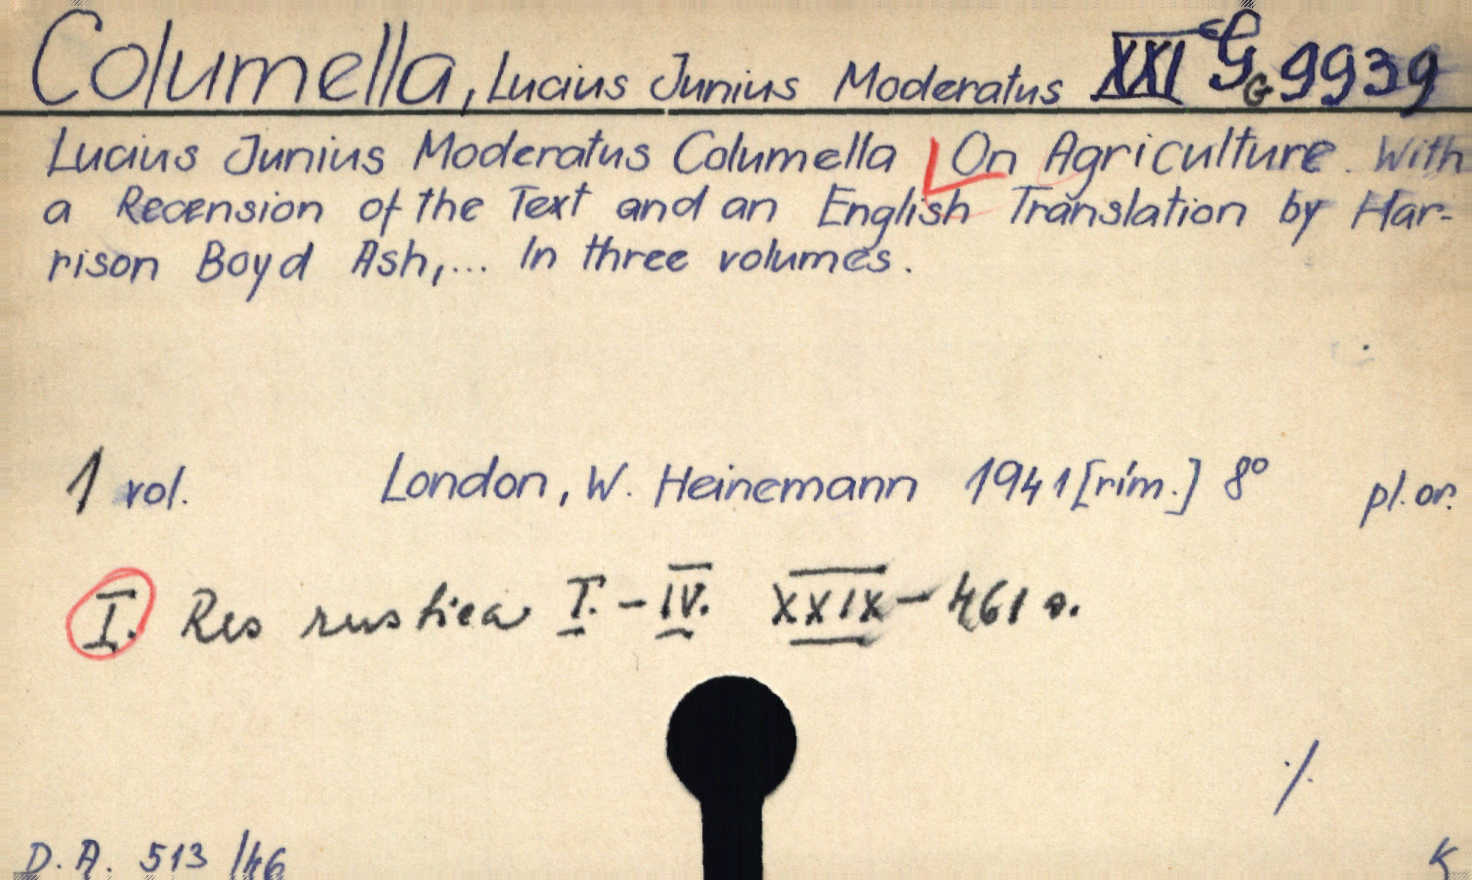 Columella, Lucius Junius Moderatus XXI G G 9939
Lucius Junius Moderatus Columella On Agriculture. With
a Recension of the Text and an English Translation by Har-
rison Boyd Ash,... In three volumes.
1 vol. London, W. Heinemann 1941 [rím.] 8° pl. or.
I. Res rustica I. - IV. XXIX - 461 s.
./.
D. A. 513 /46
K